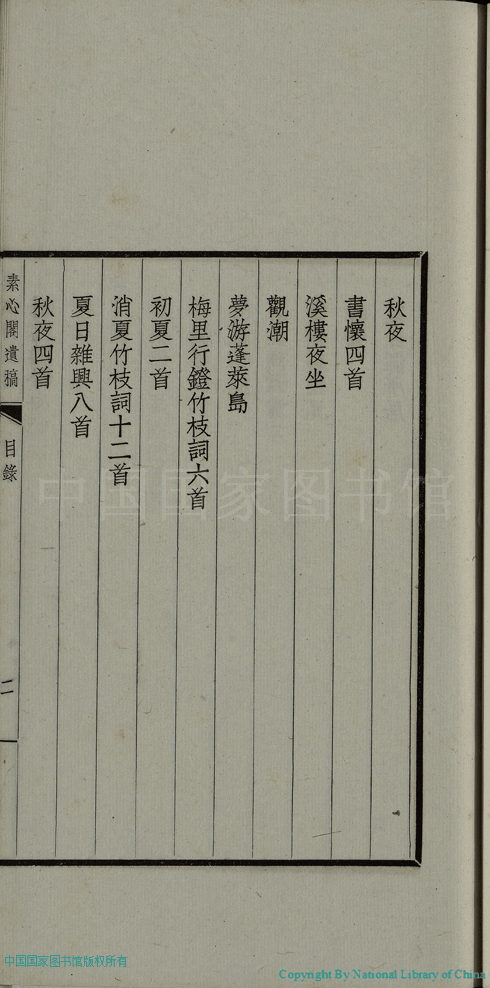 秋夜
書懷四首
溪樓夜坐
觀潮
夢游蓬萊島
梅里行鐙竹枝詞六首
初夏二首
消夏竹枝詞十二首
夏日雜興八首
秋夜四首
素心閣遺稿
目錄
二
中国国家图书馆
中国国家图书馆版权所有
Copyright By National Library of China